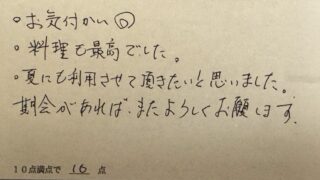 。お気付かい◎
。料理も最高でした。
。夏にも利用させて頂きたいと思いました。
期会があれば、またよろしくお願します。
10点満点で 10 点